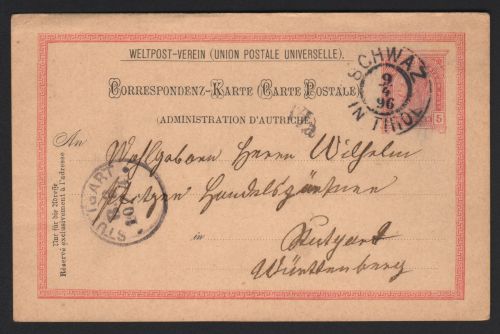 WELTPOST-VEREIN (UNION POSTALE UNIVERSELLE).
CORRESPONDENZ-KARTE (CARTE POSTALE)
(ADMINISTRATION D'AUTRICHE)
SCHWAZ
9
4
96
IN TIROL
5
An
Wohlgeboren Herrn Wilhelm
Handelsgärtner
in
Stuttgart
Württemberg
Nur für die Adresse.
Réservé exclusivement à l'adresse
STUTTGART